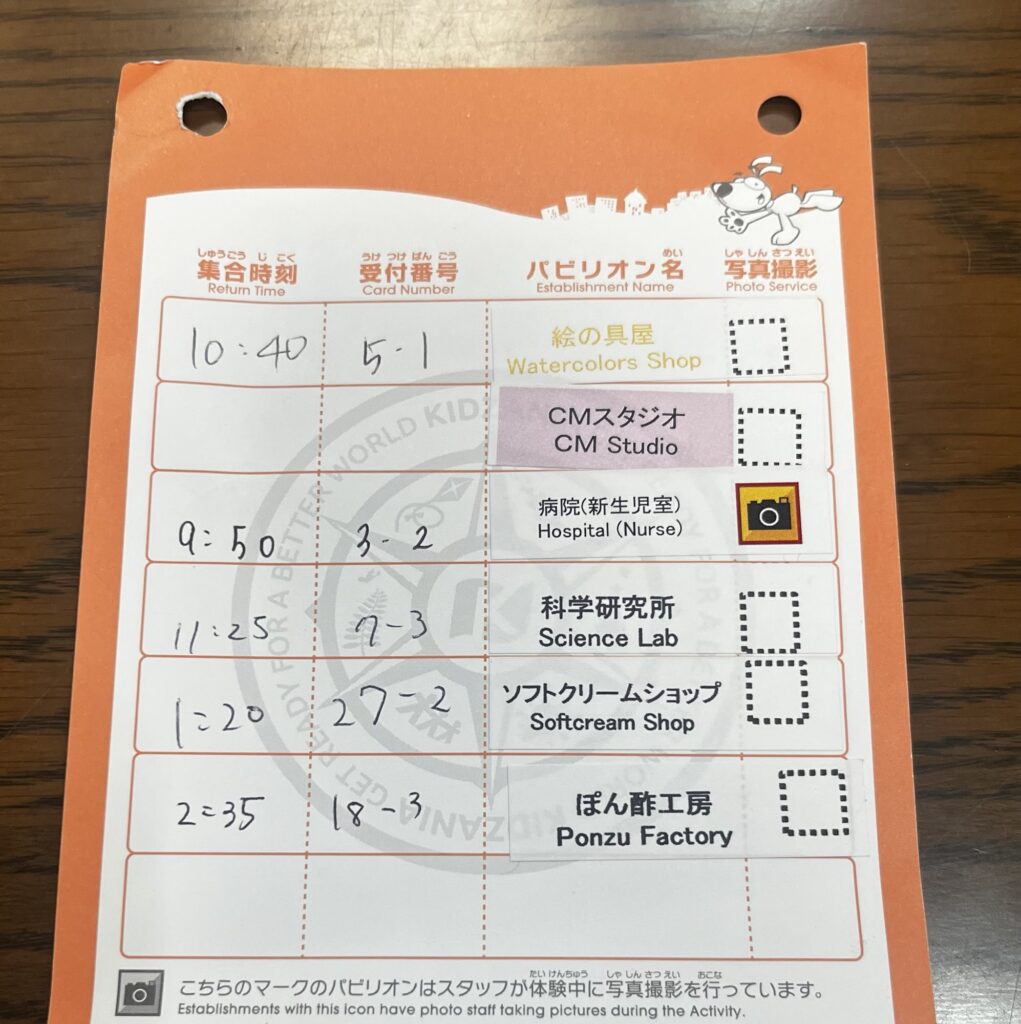 しゅうごう じ こく
集合時刻
Return Time
うけ つけ ばん ごう
受付番号
Card Number
めい
パビリオン名
Establishment Name
しゃ しん さつ えい
写真撮影
Photo Service
10:40 5-1 絵の具屋
Watercolors Shop
CMスタジオ
CM Studio
9:50 3-2 病院(新生児室)
Hospital (Nurse)
11:25 7-3 科学研究所
Science Lab
1:20 27-2 ソフトクリームショップ
Softcream Shop
2:35 18-3 ぽん酢工房
Ponzu Factory
GET READY FOR A BETTER WORLD KIDZANIA
たいけんちゅう しゃ しん さつ えい おこな
こちらのマークのパビリオンはスタッフが体験中に写真撮影を行っています。
Establishments with this icon have photo staff taking pictures during the Activity.